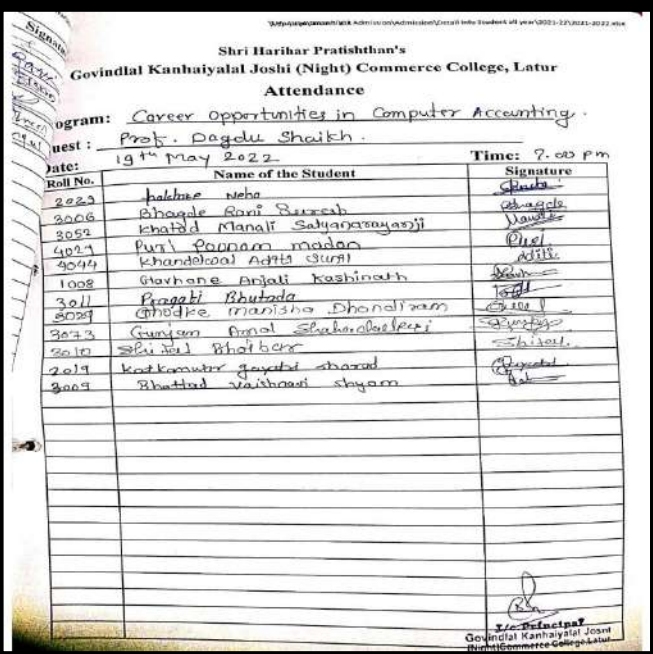 Shri Harihar Pratishthan's
Govindlal Kanhaiyalal Joshi (Night) Commerce College, Latur
Attendance
ogram: Career Opportunities in Computer Accounting.
uest : Prof. Dagdu Shaikh.
Date: 19th May 2022 Time: 7.00 pm
Roll No. Name of the Student Signature
2023 Neha
3006 Bhagde Rani Suresh Bhagde
3052 Khatod Manali Satyanarayanji
4029 Puri Poonam madan Puri
4044 Khandelwal Aditi Sunil Aditi
1008 Gavhane Anjali Kashinath
3011 Pragati Bhutada
3029 Ghodke Manisha Dhondiram
3073 Gunjam Amol
3010 Shital Shital
2019 gayatri sharad
3009 Bhattad vaishnavi shyam
I/c Principal
Govindlal Kanhaiyalal Joshi
(Night)Commerce College,Latur